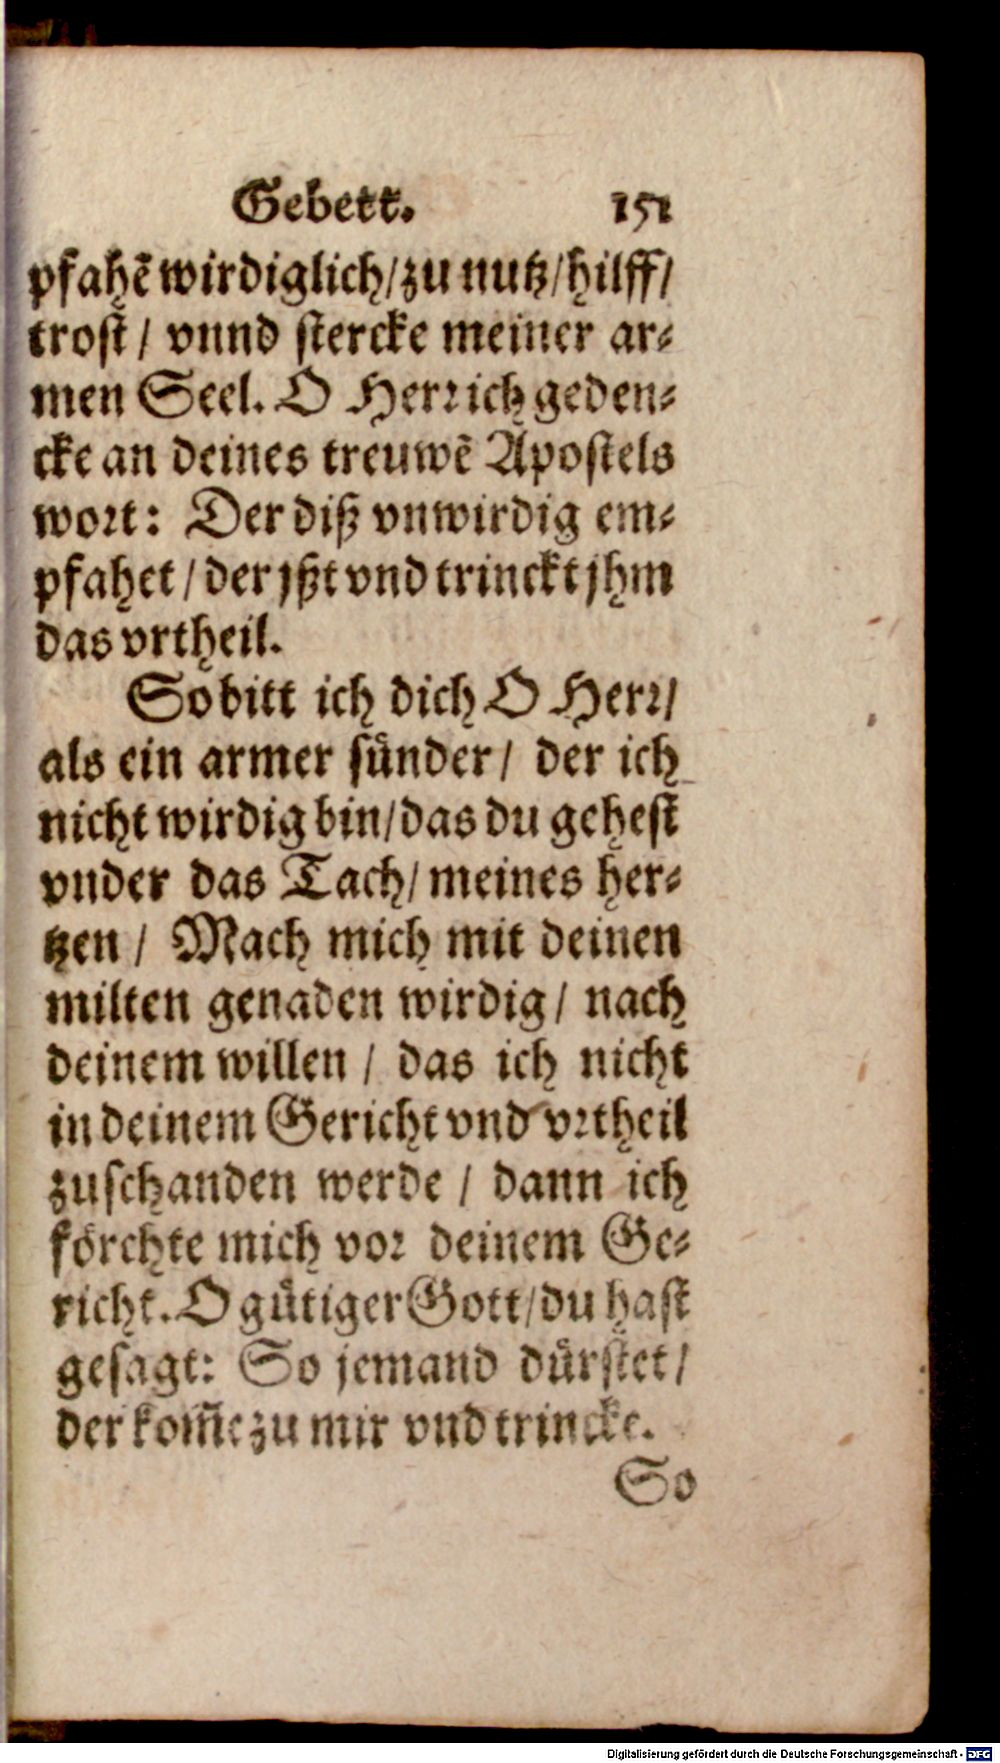 Gebett. 151
pfahẽ wirdiglich/ zu nutz/ hilff/
trost/ vnnd stercke meiner ar-
men Seel. O Herr ich geden-
cke an deines treuwẽ Apostels
wort: Der diß vnwirdig em-
pfahet/ der jßt vnd trinckt jhm
das vrtheil.
So bitt ich dich O Herr/
als ein armer sünder/ der ich
nicht wirdig bin/ das du gehest
vnder das Tach/ meines her-
tzen/ Mach mich mit deinen
milten genaden wirdig/ nach
deinem willen/ das ich nicht
in deinem Gericht vnd vrtheil
zuschanden werde/ dann ich
förchte mich vor deinem Ge-
richt. O gütiger Gott/ du hast
gesagt: So jemand dürstet/
der kom̃e zu mir vnd trincke.
So
Digitalisierung gefördert durch die Deutsche Forschungsgemeinschaft - DFG